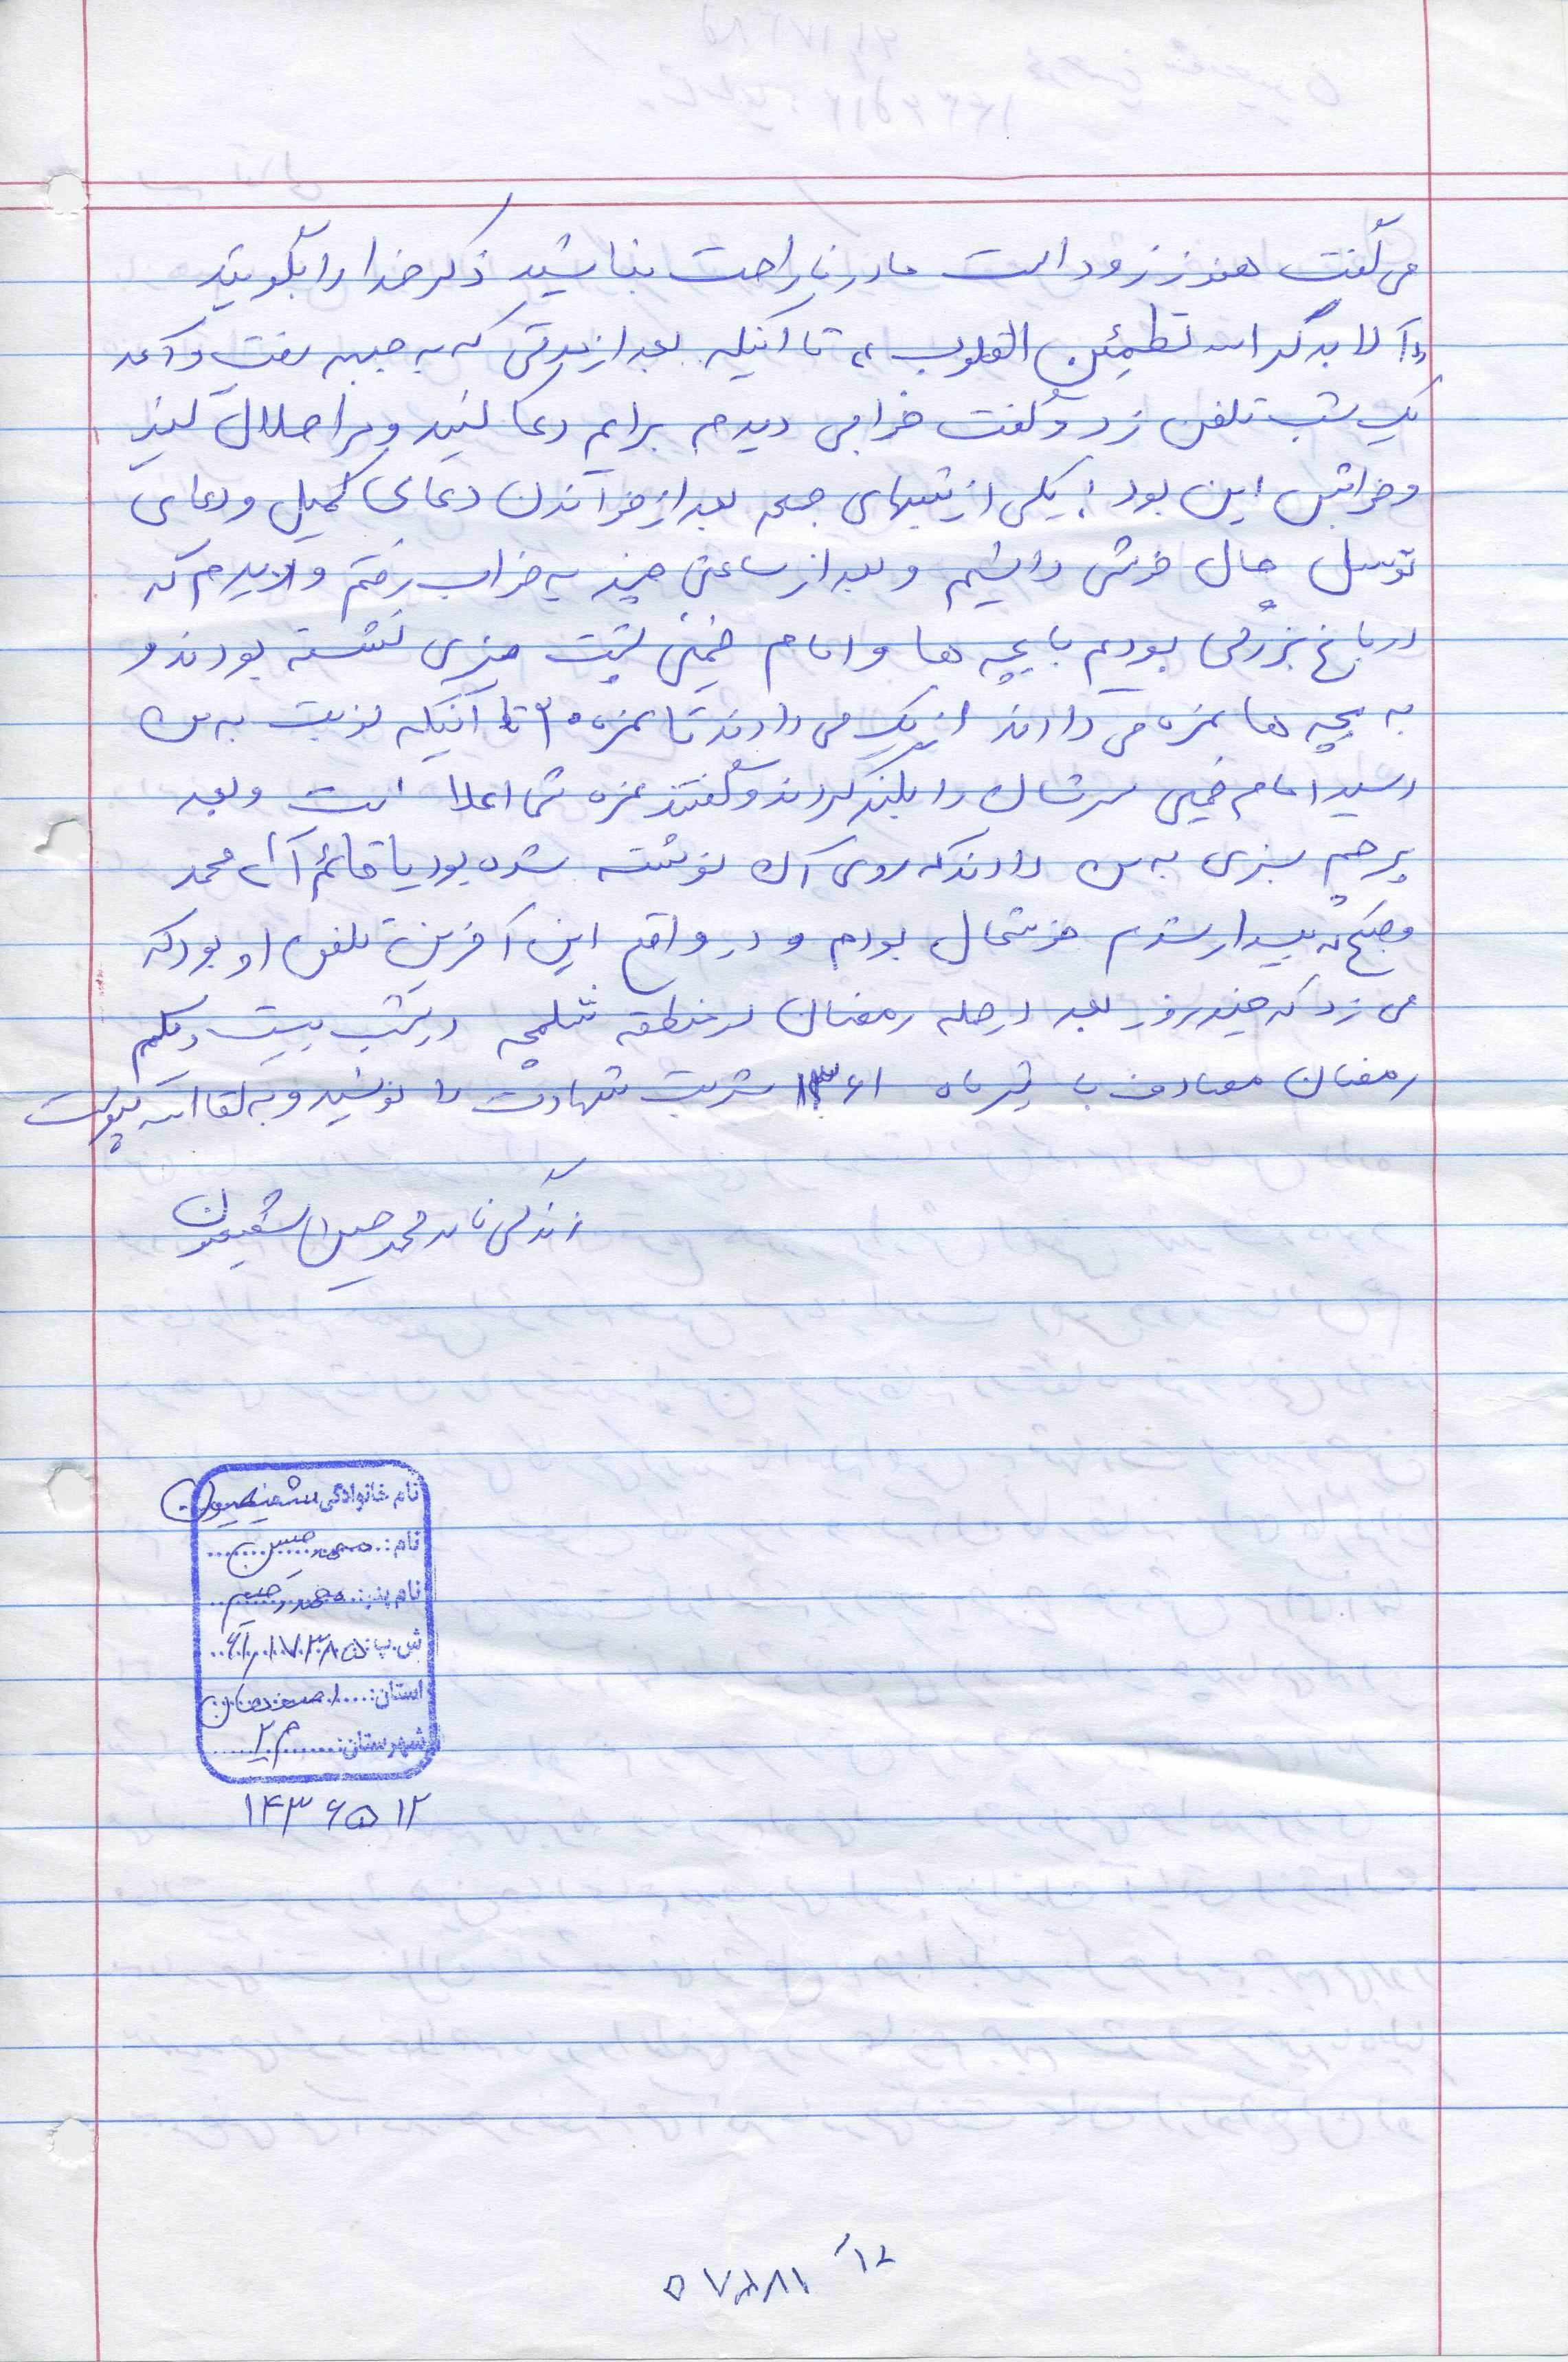 می گفت هنوز زود است مادر ناراحت نباشید ذکر خدا را بگویید
«آلا بذکر الله تطمئِن القلوب»، تا اینکه بعد از مدتی که به جبهه رفت و آمد
یک شب تلفن زد و گفت خوابی دیدم برایم دعا کنید و مرا حلال کنید
و خوابش این بود: یکی از شبهای جمعه بعد از خواندن دعای کمیل و دعای
توسل حال خوشی داشتیم و بعد از ساعتی چند به خواب رفتم و دیدم که
در باغ بزرگی بودیم با بچه ها و امام خمینی پشت میزی نشسته بودند و
به بچه ها نمره می دادند از یک می دادند تا نمره ۲۰ تا اینکه نوبت به من
رسید امام خمینی سرشان را بلند کردند و گفتند نمره شما اعلا است و بعد
پرچم سبزی به من دادند که روی آن نوشته شده بود یا قائم آل محمد
و صبح که بیدار شدم خوشحال بودم و در واقع این آخرین تلفن او بود که
می زد که چند روز بعد در حمله رمضان در منطقه شلمچه در شب بیست و یکم
رمضان مصادف با تیر ماه ۱۳۶۱ شربت شهادت را نوشید و به لقا الله پیوست
زندگی نامه محمد حسین شفیعیون
نام خانوادگی: شفیعیون
نام: محمد حسین
نام پدر: محمد رحیم
ش.پ: ۶۱۰۱۷۳۸۵
استان: اصفهان
شهرستان: م ۲
۱۴۳۶۵۱۲